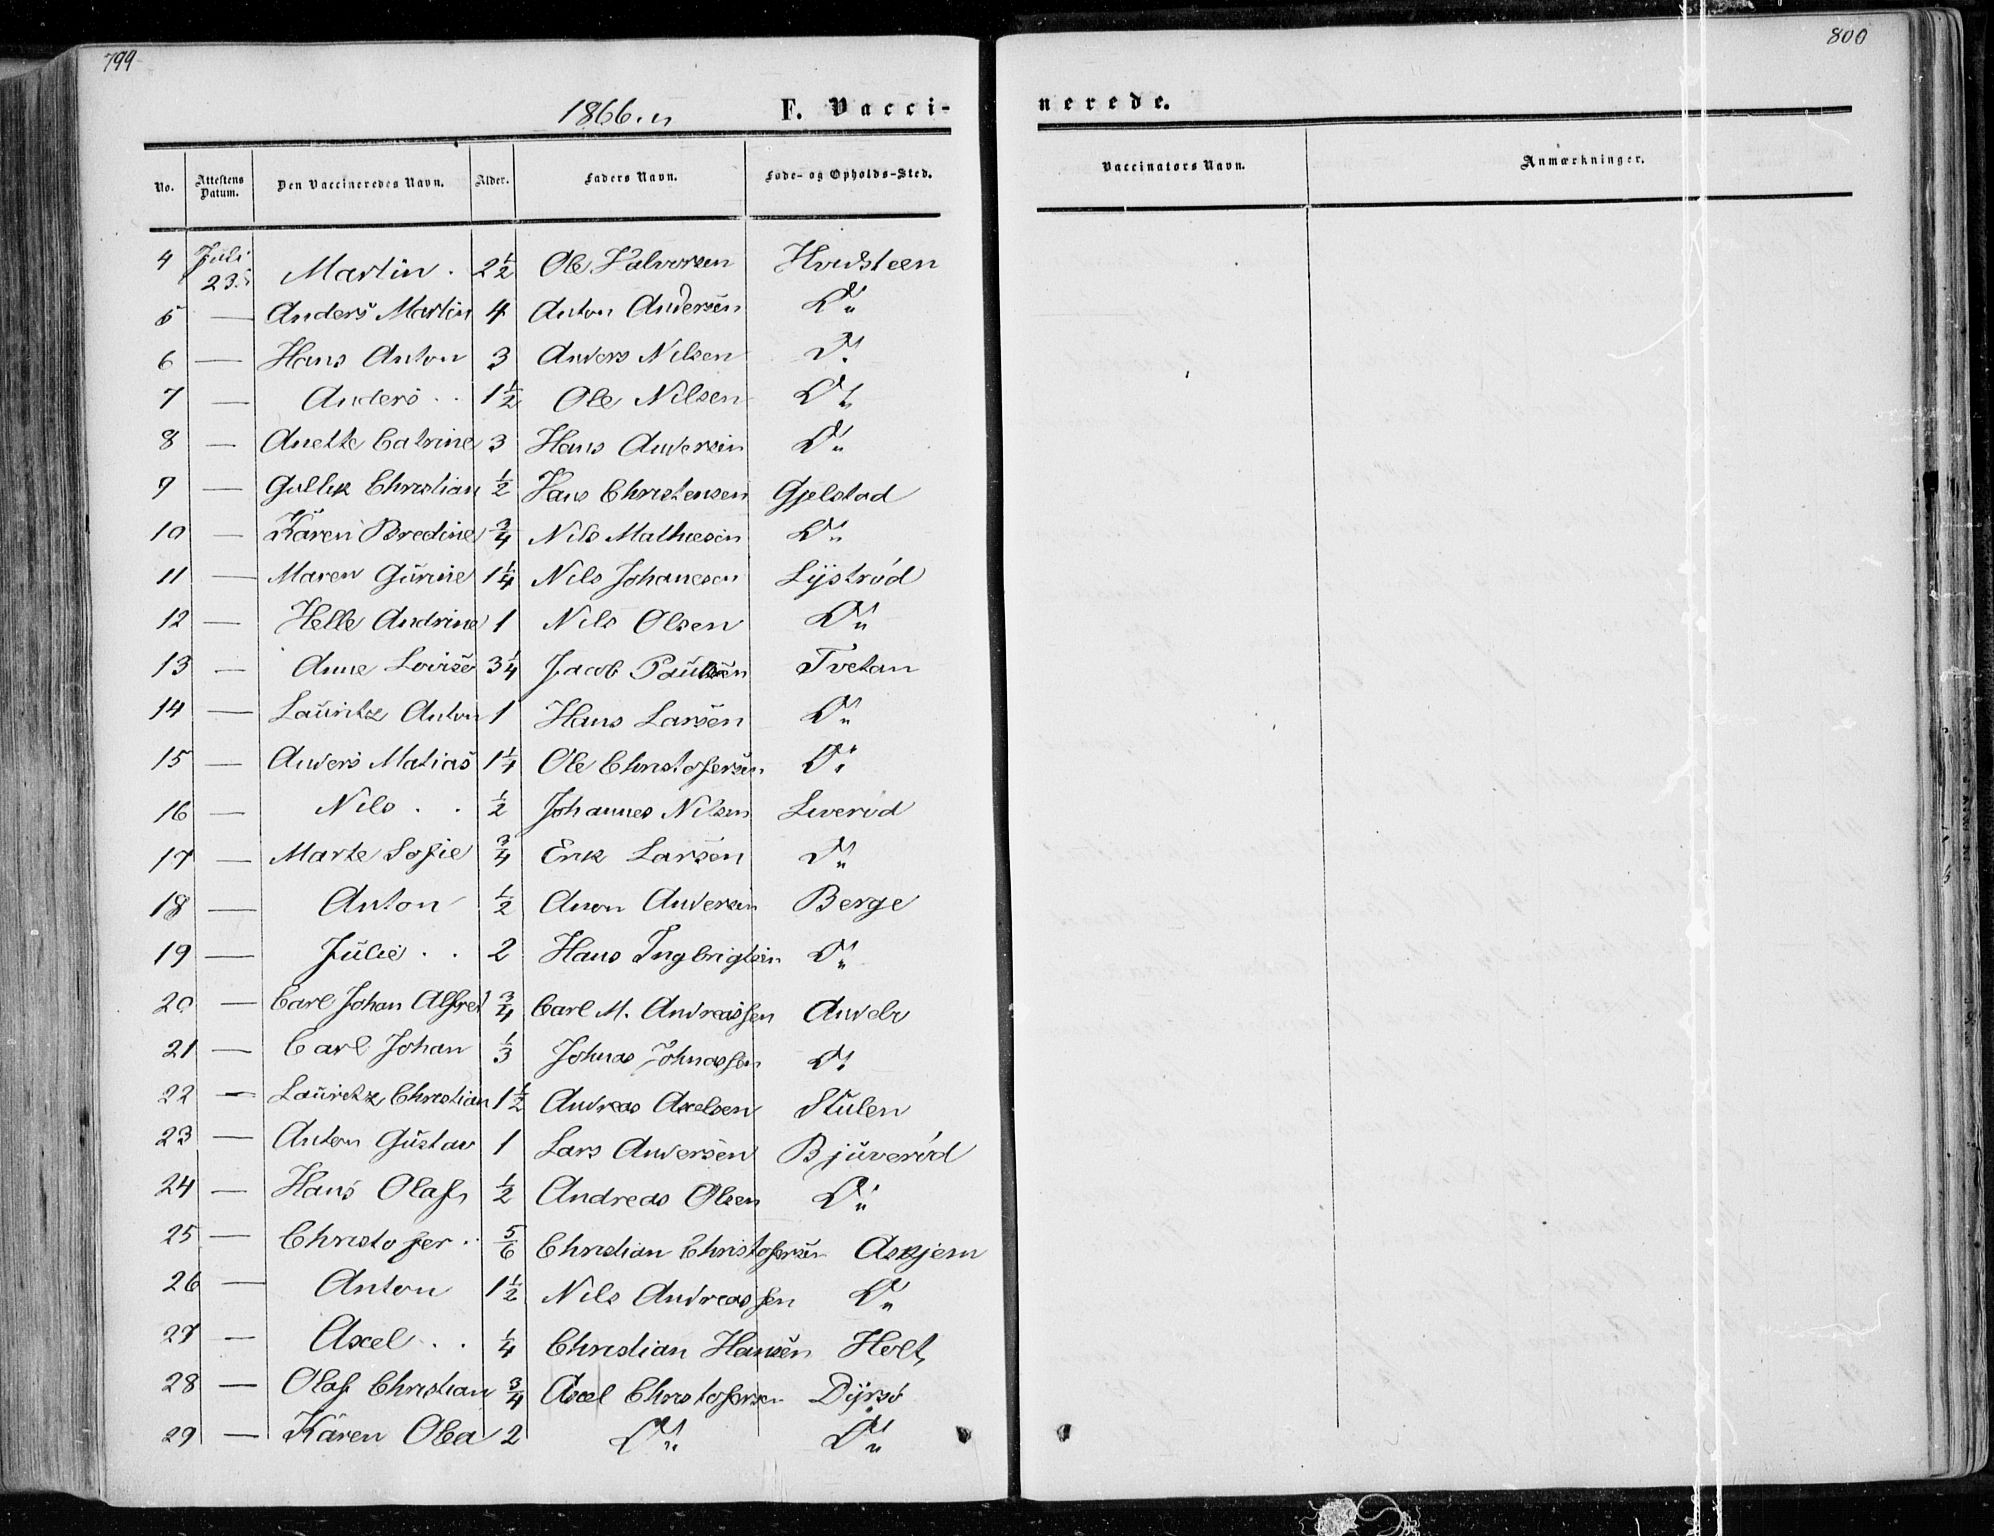 799
800
1866.
F. Vacci-
nerede.
No. Attestens Datum. Den Vaccineredes Navn. Alder. Faders Navn. Føde- og Opholds-Sted. Vaccinators Navn. Anmærkninger.
4 Juli 23. Martin. 2½ Ole Halvorsen Hvidsteen
5 — Anders Martin 4 Anton Andersen Do
6 — Hans Anton 3 Anders Nilsen Do
7 — Anders 1½ Ole Nilsen Do
8 — Anette Catrine 3 Hans Andersen Do
9 — Gullik Christian ½ Hans Christensen Gjelstad
10 — Karen Bredine ¾ Nils Mathiesen Do
11 — Maren Gurine 1¼ Nils Johanesen Lystrød
12 — Helle Andrine 1 Nils Olsen Do
13 — Anne Lovise 3¼ Jacob Paulsen Tvetan
14 — Lauritz Anton 1 Hans Larsen Do
15 — Anders Matias 1¼ Ole Christofersen Do
16 — Nils ½ Johannes Nilsen Liverød
17 — Marte Sofie ¾ Erik Larsen Do
18 — Anton ½ Anders Berge
19 — Julie 2 Hans Ingbrigtsen Do
20 — Carl Johan Alfred ¾ Carl M. Andreassen
21 — Carl Johan ⅓ Johnas Johnassen Do
22 — Lauritz Christian 1½ Andreas Axelsen Stulen
23 — Anton Gustav 1 Lars Andersen Bjuverød
24 — Hans Olaf ½ Andreas Olsen Do
25 — Christofer ⅚ Christian Christofersen Askjem
26 — Anton 1½ Nils Andreassen Do
27 — Axel ¼ Christian Hansen Holt
28 — Olaf Christian ¾ Axel Christofersen Dyrsø
29 — Karen Olea 2 Do Do